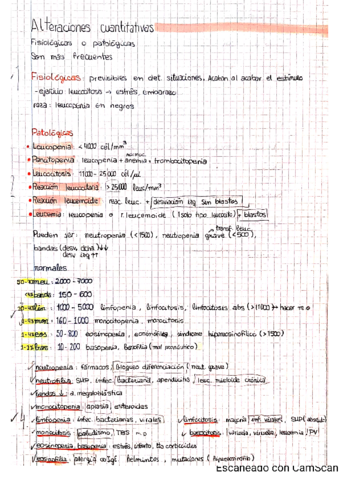 Alteraciones cuantitativas
Fisiológicas o patológicas
Son más frecuentes
Fisiológicas: previsibles en det. situaciones. Acaban al acabar el estímulo
- ejercicio leucocitosis → estrés, embarazo
raza: leucopenia en negros
Patológicas
• Leucopenia: <4000 cél/mm³
• Pancitopenia: leucopenia + anemia + trombocitopenia
• Leucocitosis: 11000-25000 cél/µL
• Reacción leucocitaria: > 25000 leuc/mm³
• Reacción leucemoide: reac. leuc. + desviación izq sin blastos
• Leucemia: leucopenia o r. leucemoide (1 solo tipo leucocito) + blastos
Pueden ser: neutropenia (<1500), neutropenia grave (<500),
bandas (desv. dcha) ↓↓
desv izq ↑↑
normales
2000 - 7000
150 - 600
1000 - 5000 linfopenia, linfocitosis, linfocitosis abs
160 - 1000 monocitopenia, monocitosis
50 - 800 eosinopenia, eosinofilia, síndrome hipereosinofílico (>1500)
10 - 200 basopenia, basofilia (mal pronóstico)
✓ neutropenia: fármacos, bloqueo diferenciación (neut. grave)
✓ neutrofilia: SMP, infec. bacteriana, apendicitis, leuc. mieloide crónica
✓ bandas ↓: a. megaloblástica
✓ monocitopenia: aplasia, esteroides
✓ linfopenia: infec. bacterianas, virales
✓ linfocitosis: mayoría inf. virales, SMP
✓ monocitosis: paludismo, TBC
✓ basocitosis: viruela, varicela,
✓ eosinopenia, basopenia: estrés, tto corticoides
✓ eosinofilia: alergia x IgE, helmintos, mutaciones
Escaneado con CamScan